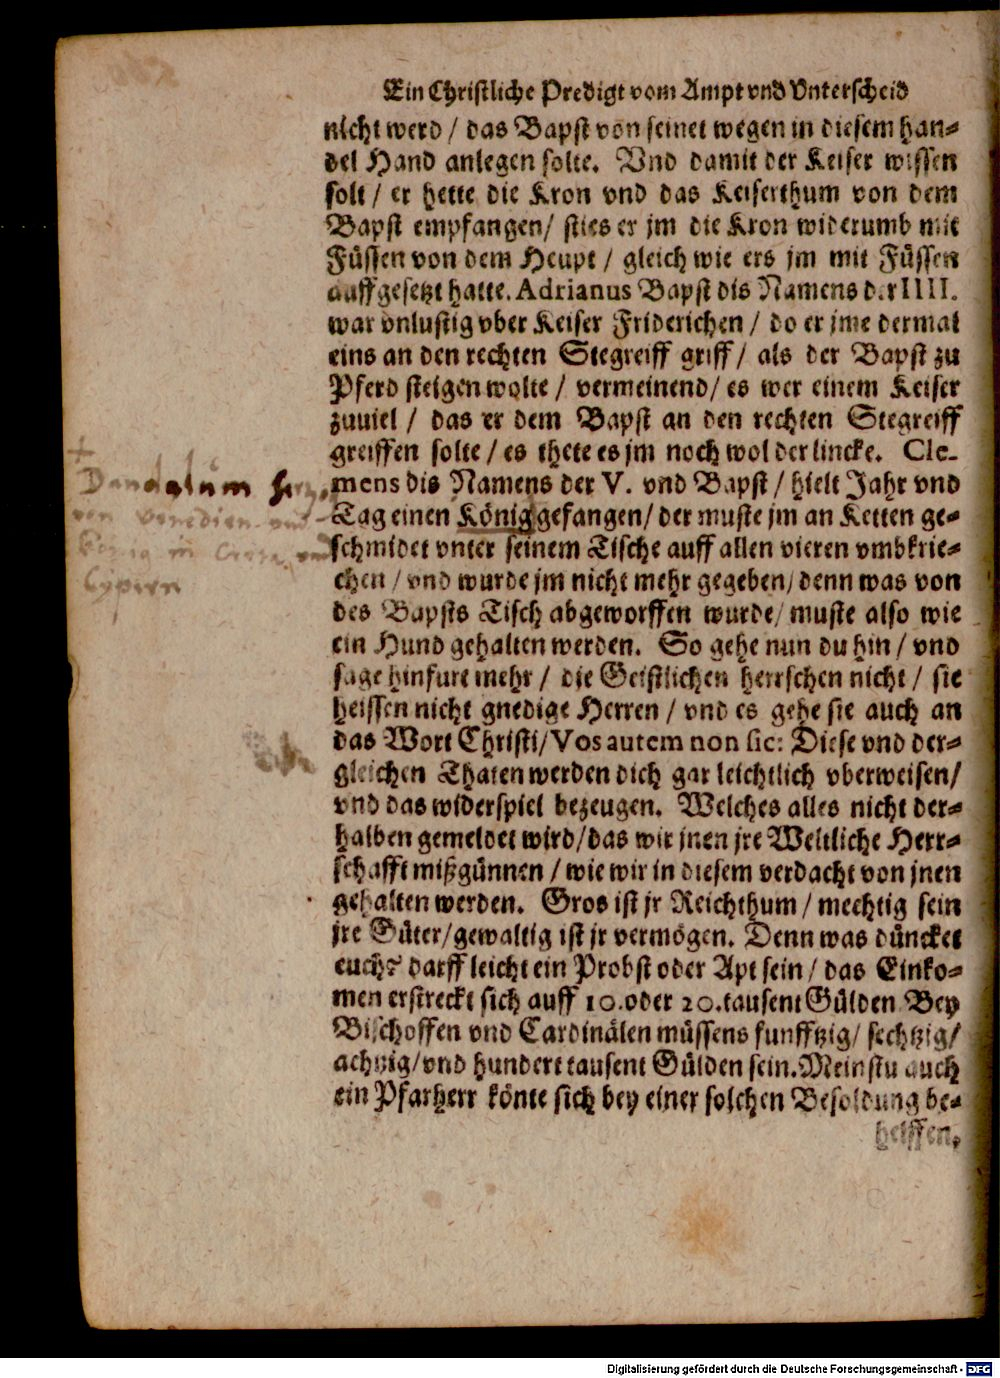 Ein Christliche Predigt vom Ampt vnd Vnterscheid
nicht werd / das Bapst von seinet wegen in diesem han⸗
del Hand anlegen solte. Vnd damit der Keiser wissen
solt / er hette die Kron vnd das Keiserthum von dem
Bapst empfangen / sties er jm die Kron widerumb mit
Füssen von dem Heupt / gleich wie ers jm mit Füssen
auffgesetzt hatte. Adrianus Bapst dis Namens der IIII.
war vnlustig vber Keiser Friderichen / do er jme dermal
eins an den rechten Stegreiff griff / als der Bapst zu
Pferd steigen wolte / vermeinend / es wer einem Keiser
zuuiel / das er dem Bapst an den rechten Stegreiff
greiffen solte / es thete es jm noch wol der lincke. Cle-
mens dis Namens der V. vnd Bapst / hielt Jahr vnd
Tag einen König gefangen / der muste jm an Ketten ge⸗
schmidet vnter seinem Tische auff allen vieren vmbkrie⸗
chen / vnd wurde jm nicht mehr gegeben / denn was von
des Bapsts Tisch abgeworffen wurde / muste also wie
ein Hund gehalten werden. So gehe nun du hin / vnd
sage hinfurt mehr / die Geistlichen herrschen nicht / sie
heissen nicht gnedige Herren / vnd es gehe sie auch an
das Wort Christi / Vos autem non sic: Diese vnd der⸗
gleichen Thaten werden dich gar leichtlich vberweisen /
vnd das widerspiel bezeugen. Welches alles nicht der⸗
halben gemeldet wird / das wir jnen jre Weltliche Herr⸗
schafft mißgünnen / wie wir in diesem verdacht von jnen
gehalten werden. Gros ist jr Reichthum / mechtig sein
jre Güter / gewaltig ist jr vermögen. Denn was düncket
euch? darff leicht ein Probst oder Apt sein / das Einko⸗
men erstreckt sich auff 10. oder 20. tausent Gülden Bey
Bischoffen vnd Cardinälen müssens funfftzig / sechtzig /
achtzig / vnd hundert tausent Gülden sein. Meinstu auch
ein Pfarherr könte sich bey einer solchen Besoldung be⸗
helffen.
+
Dandalum
von Venedien vnd
König in Creta vnd
Cypern
Digitalisierung gefördert durch die Deutsche Forschungsgemeinschaft - DFG